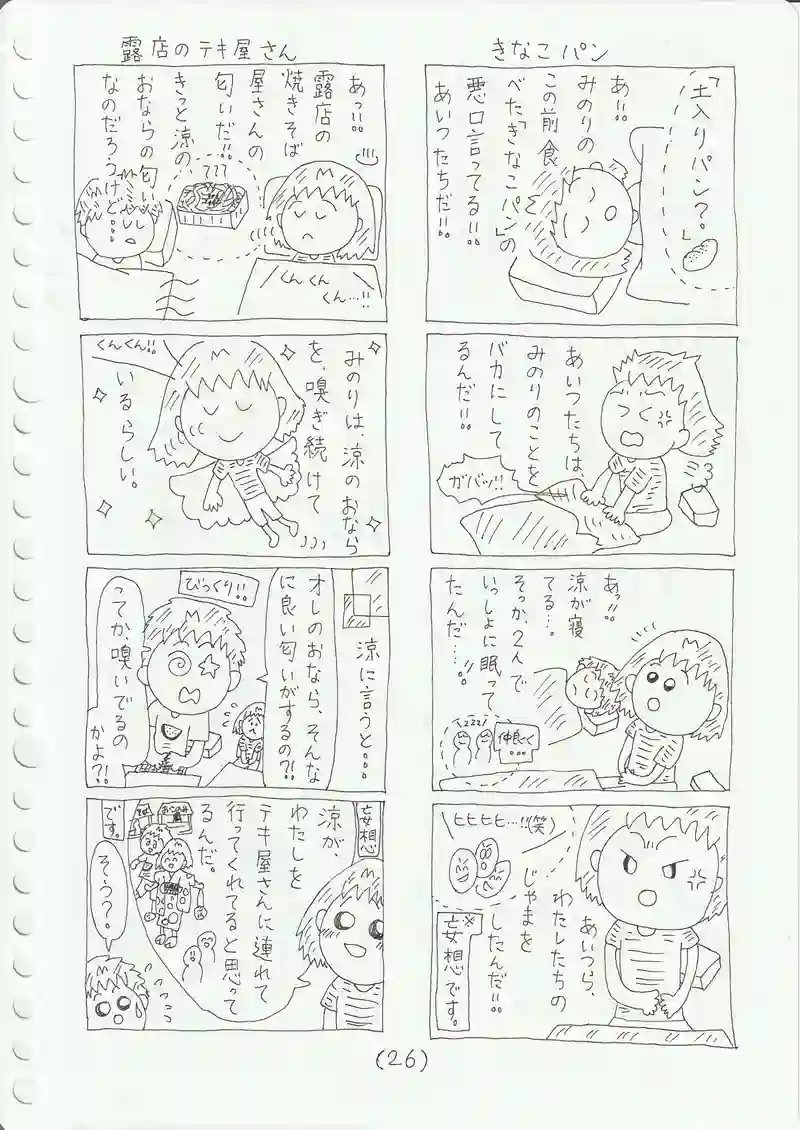 きなこパン
「土入りパン？。」
あ!!
みのりの
この前食
べた「きなこパン」の
悪口言ってる!!
あいつたちだ!!
あいつたちは、
みのりのことを
バカにして
るんだ!!
ガバッ!!
あっ!!
涼が寝
てる…。
そっか、2人で
いっしょに眠って
たんだ…!!
仲良く
…
zzz!
あいつら、
わたしたちの
じゃまを
したんだ!!
ヒヒヒヒ…!!(笑)
※
妄想です。
露店のテキ屋さん
あっ!!
露店の
焼きそば
屋さんの
匂いだ!!
きっと涼の、
おならの匂い
なのだろうけど…。
???
くんくん
くん…!!
みのりは、涼のおなら
を、嗅ぎ続けて
いるらしい。
くんくん!!
涼に言うと…
オレのおなら、そんな
に良い匂いがするの?!
びっくり!!
ってか、嗅いでるの
かよ?!
妄想
です。
涼が、
わたしを
テキ屋さんに連れて
行ってくれてると思って
るんだ。
そう？。
(26)